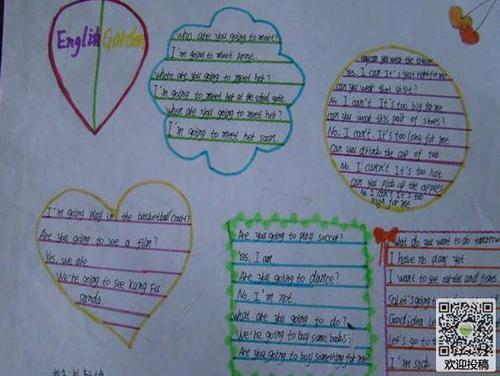 English Garden
who are you going to meet?
I'm going to meet
what are you going to meet her?
I'm going to meet her at the school gate
when are you going to meet her?
I'm going to meet her soon
can you wear the
Yes, I can. It's just right for me
can you wear that shirt?
No, I can't. It's too big for me
can you wear this pair of shoes?
No, I can't. It's too long for me
can you drink the cup of tea
No, I can't. It's too hot
can you pick up the apples
No I can't. It's too
high for me.
I'm going play in the basketball
Are you going to see a film?
Yes, we are
We're going to see kung fu
panda.
Are you going to play soccer?
Yes, I am
Are you going to dance?
No, I'm not.
what are you going to do?
We're going to buy some books.
Are you going to buy something for me?
What do you want to do
I have no plans yet
I want to see turtles and
So let's going
Good idea
Let's go to
I'm sick
欢迎投稿